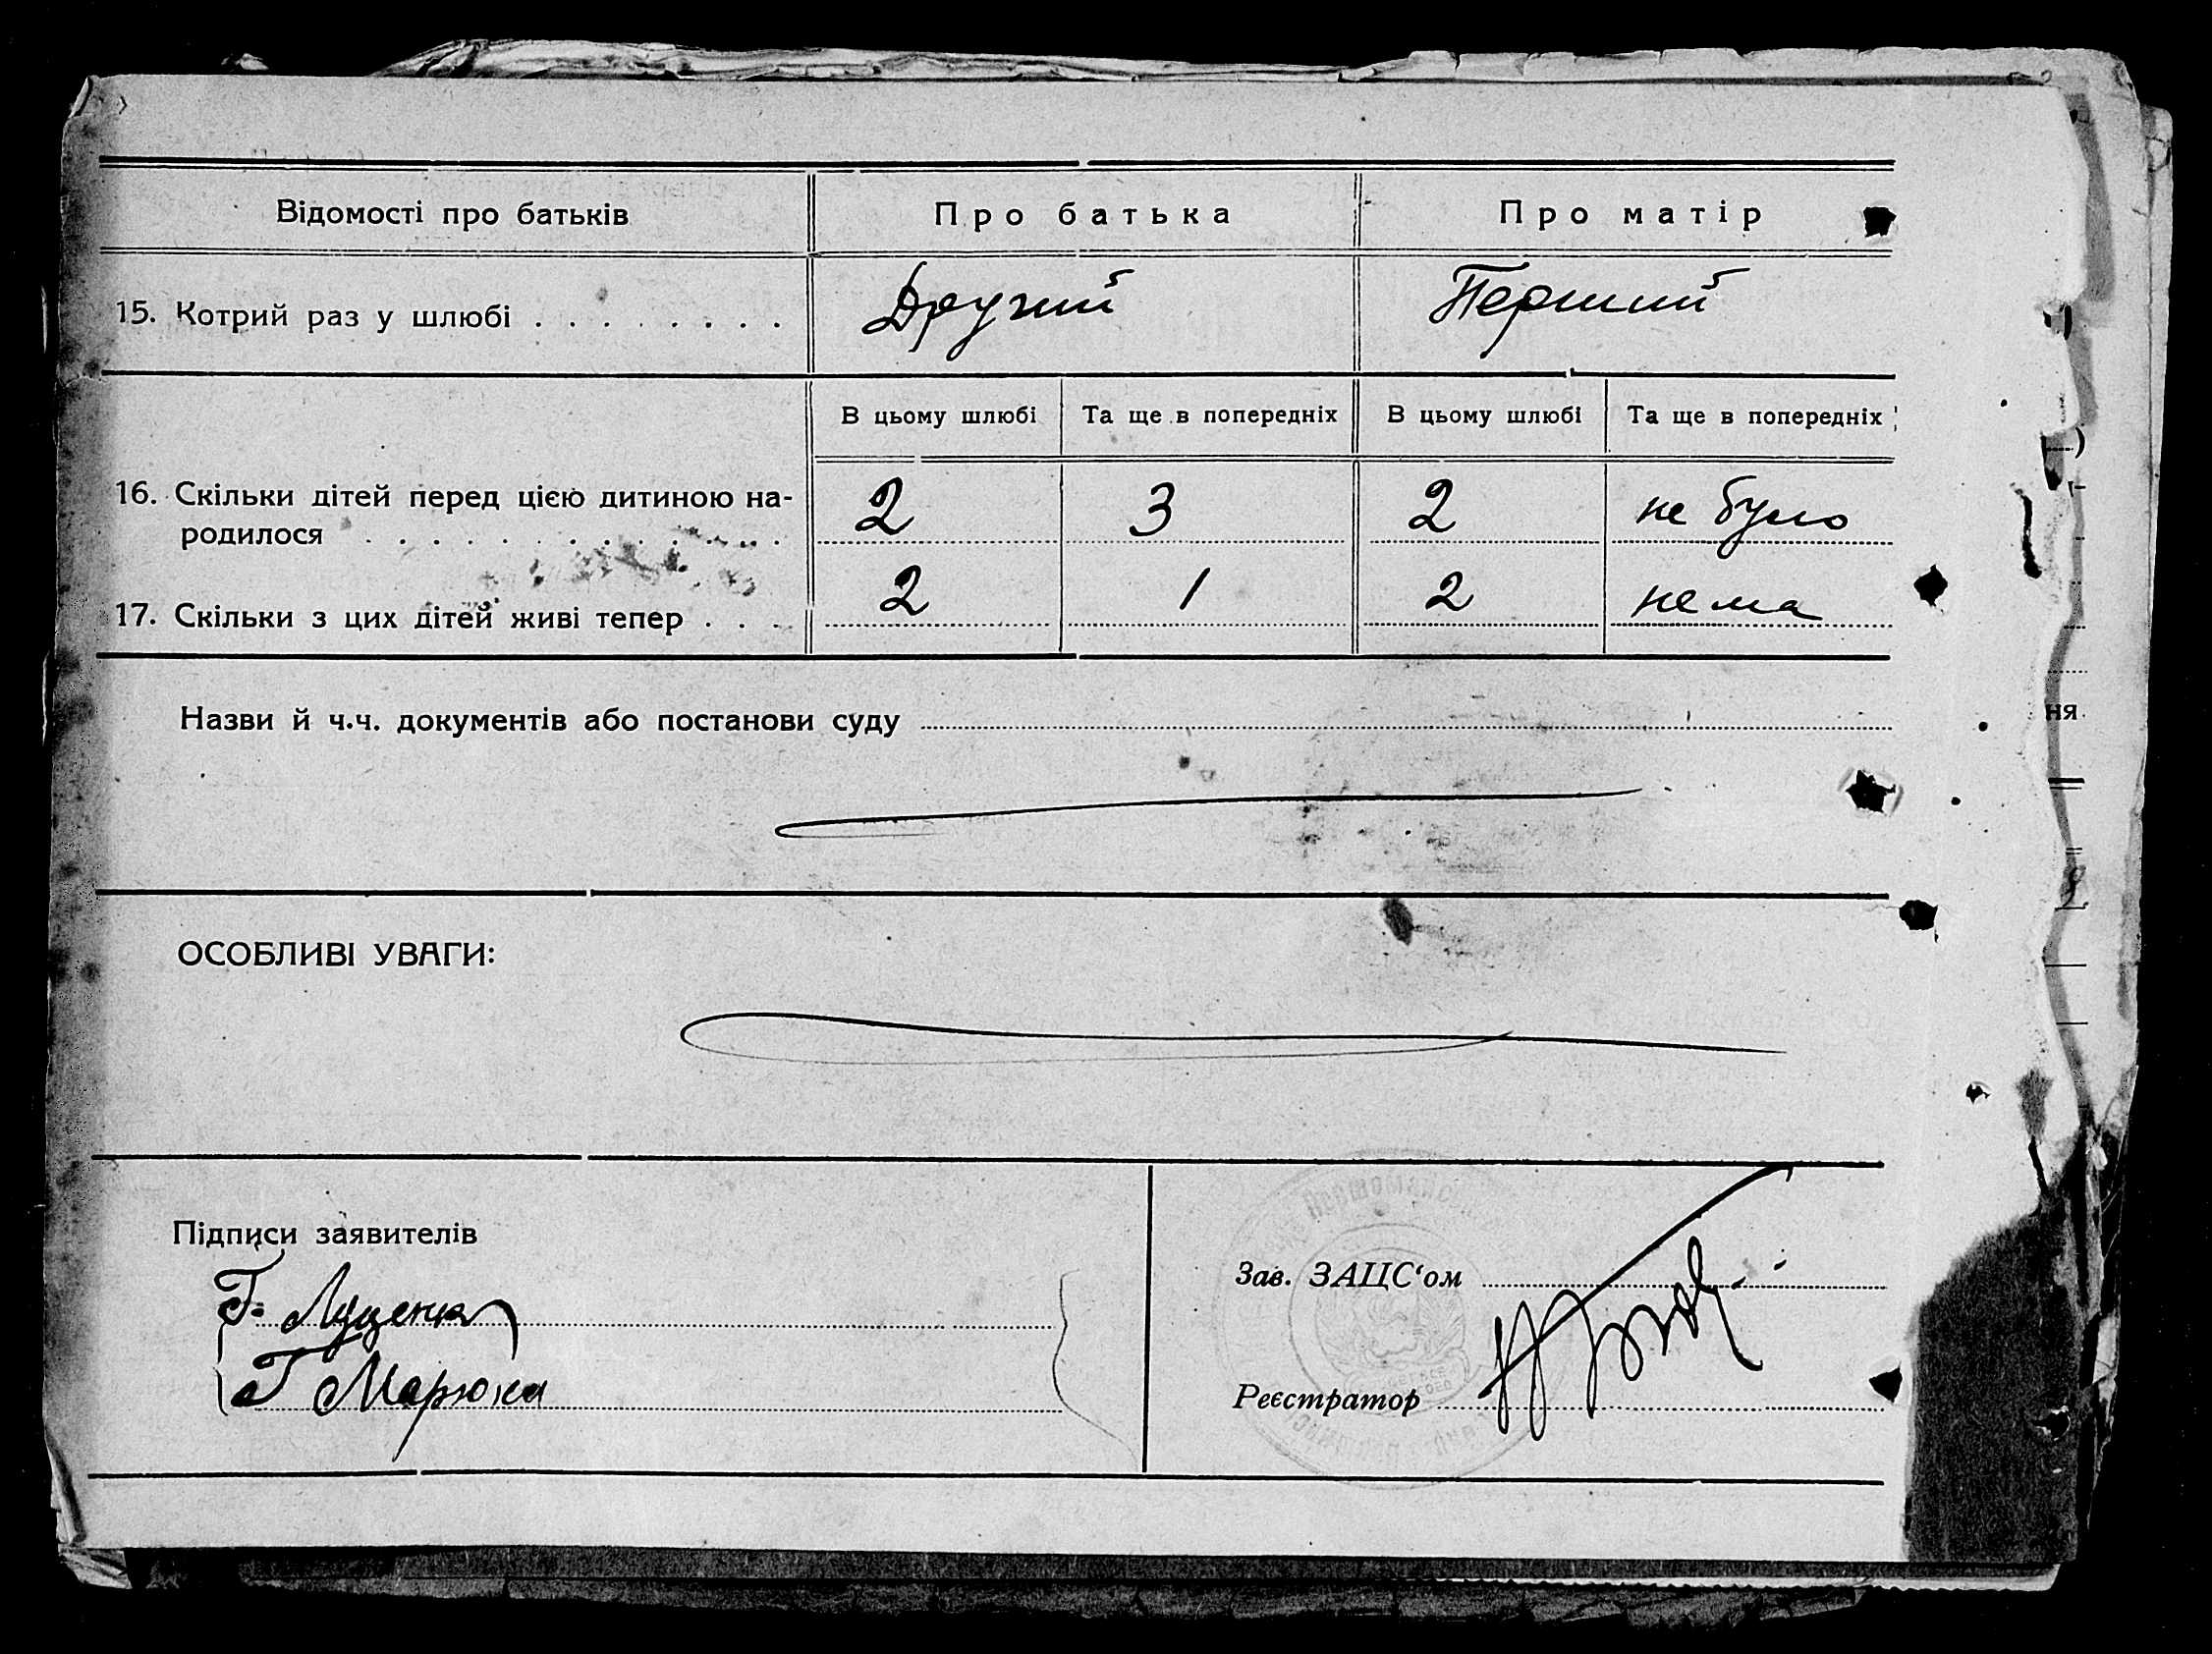 Відомості про батьків
Про батька
Про матір
15. Котрий раз у шлюбі
Другий
Перший
В цьому шлюбі
Та ще в попередніх
В цьому шлюбі
Та ще в попередніх
16. Скільки дітей перед цією дитиною на-
родилося
2
3
2
не було
17. Скільки з цих дітей живі тепер
2
1
2
нема
Назви й ч.ч. документів або постанови суду
ОСОБЛИВІ УВАГИ:
Підписи заявителів
Г. Луценко
Г Марюха
Зав. ЗАЦС‘ом
Реєстратор
ня